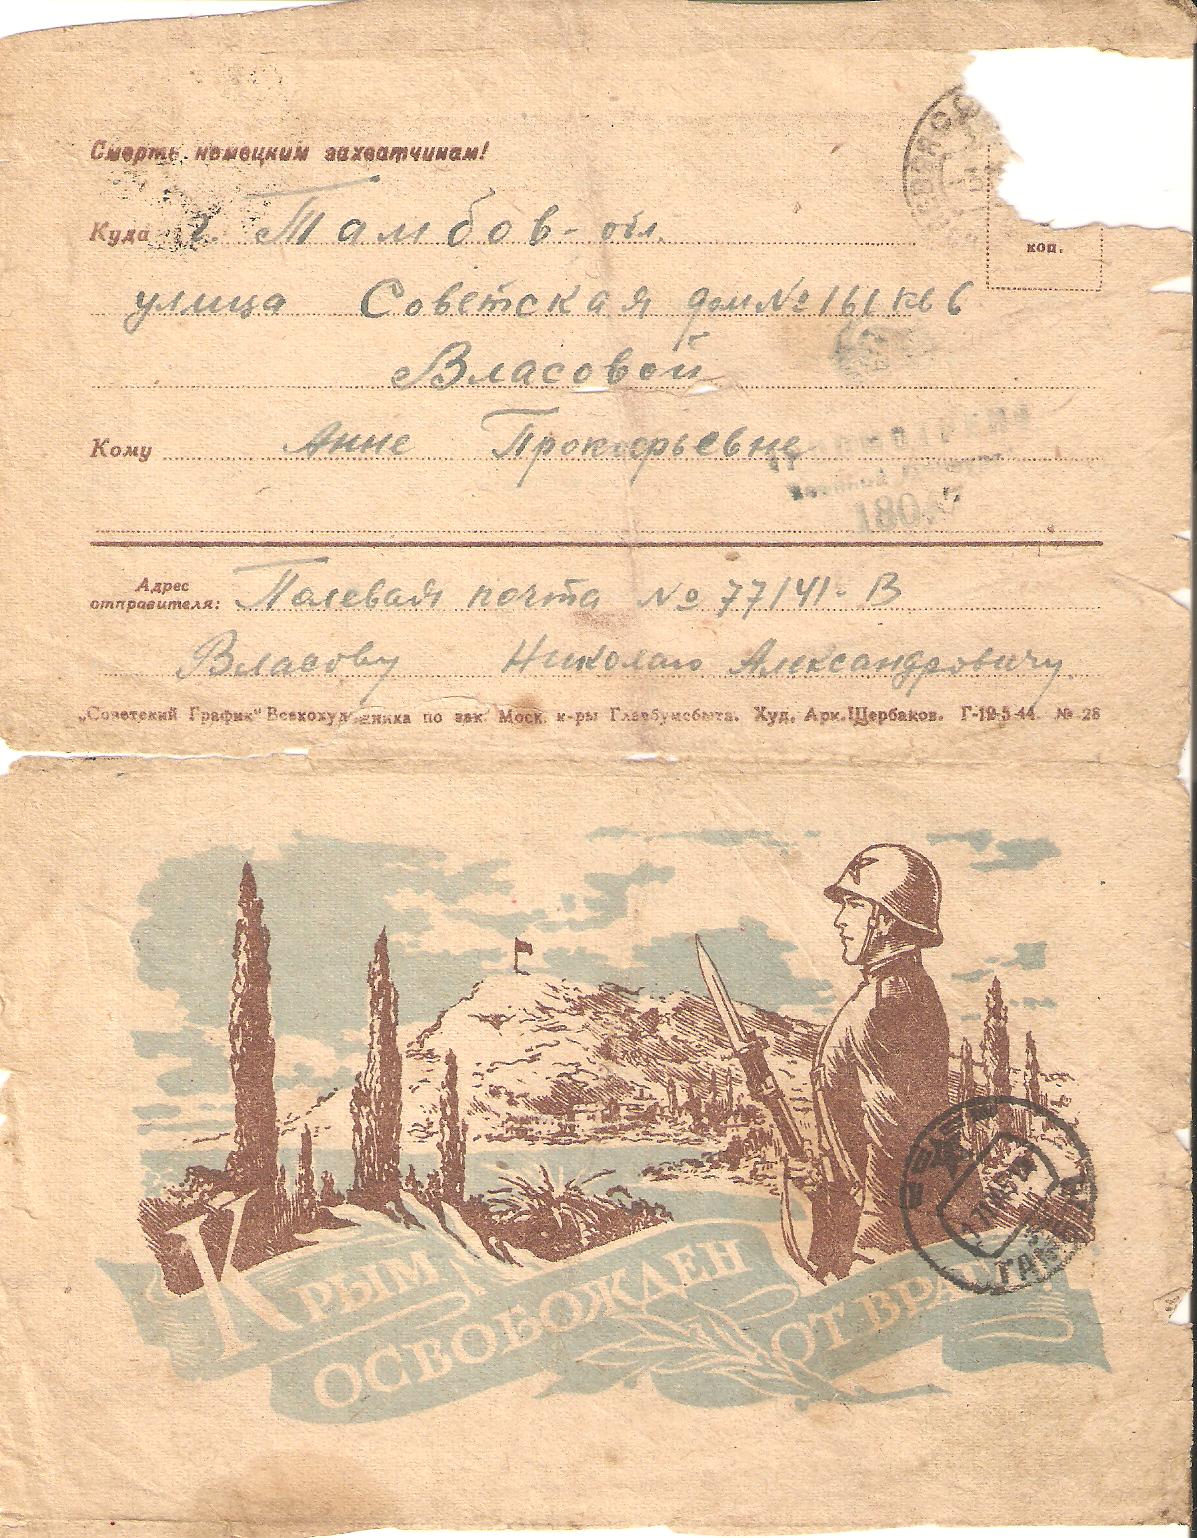 Смерть немецким захватчикам!
Куда г. Тамбов - обл.
коп.
улица Советская дом № 161 кв 6
Власовой
Кому Анне Прокофьевне
Адрес
отправителя: Полевая почта № 77141-В
Власову Николаю Александровичу
„Советский График" Всекохудожника по зак. Моск. к-ры Главбумсбыта. Худ. Арк. Щербаков. Г-19-5-44. № 28
КРЫМ
ОСВОБОЖДЕН
ОТ ВРАГА!